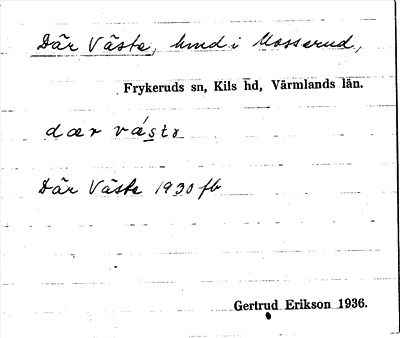 Där Västa, hmd i Mosserud,
Frykeruds sn, Kils hd, Värmlands län.
dær vásta
Där Västa 1930 fb
Gertrud Erikson 1936.